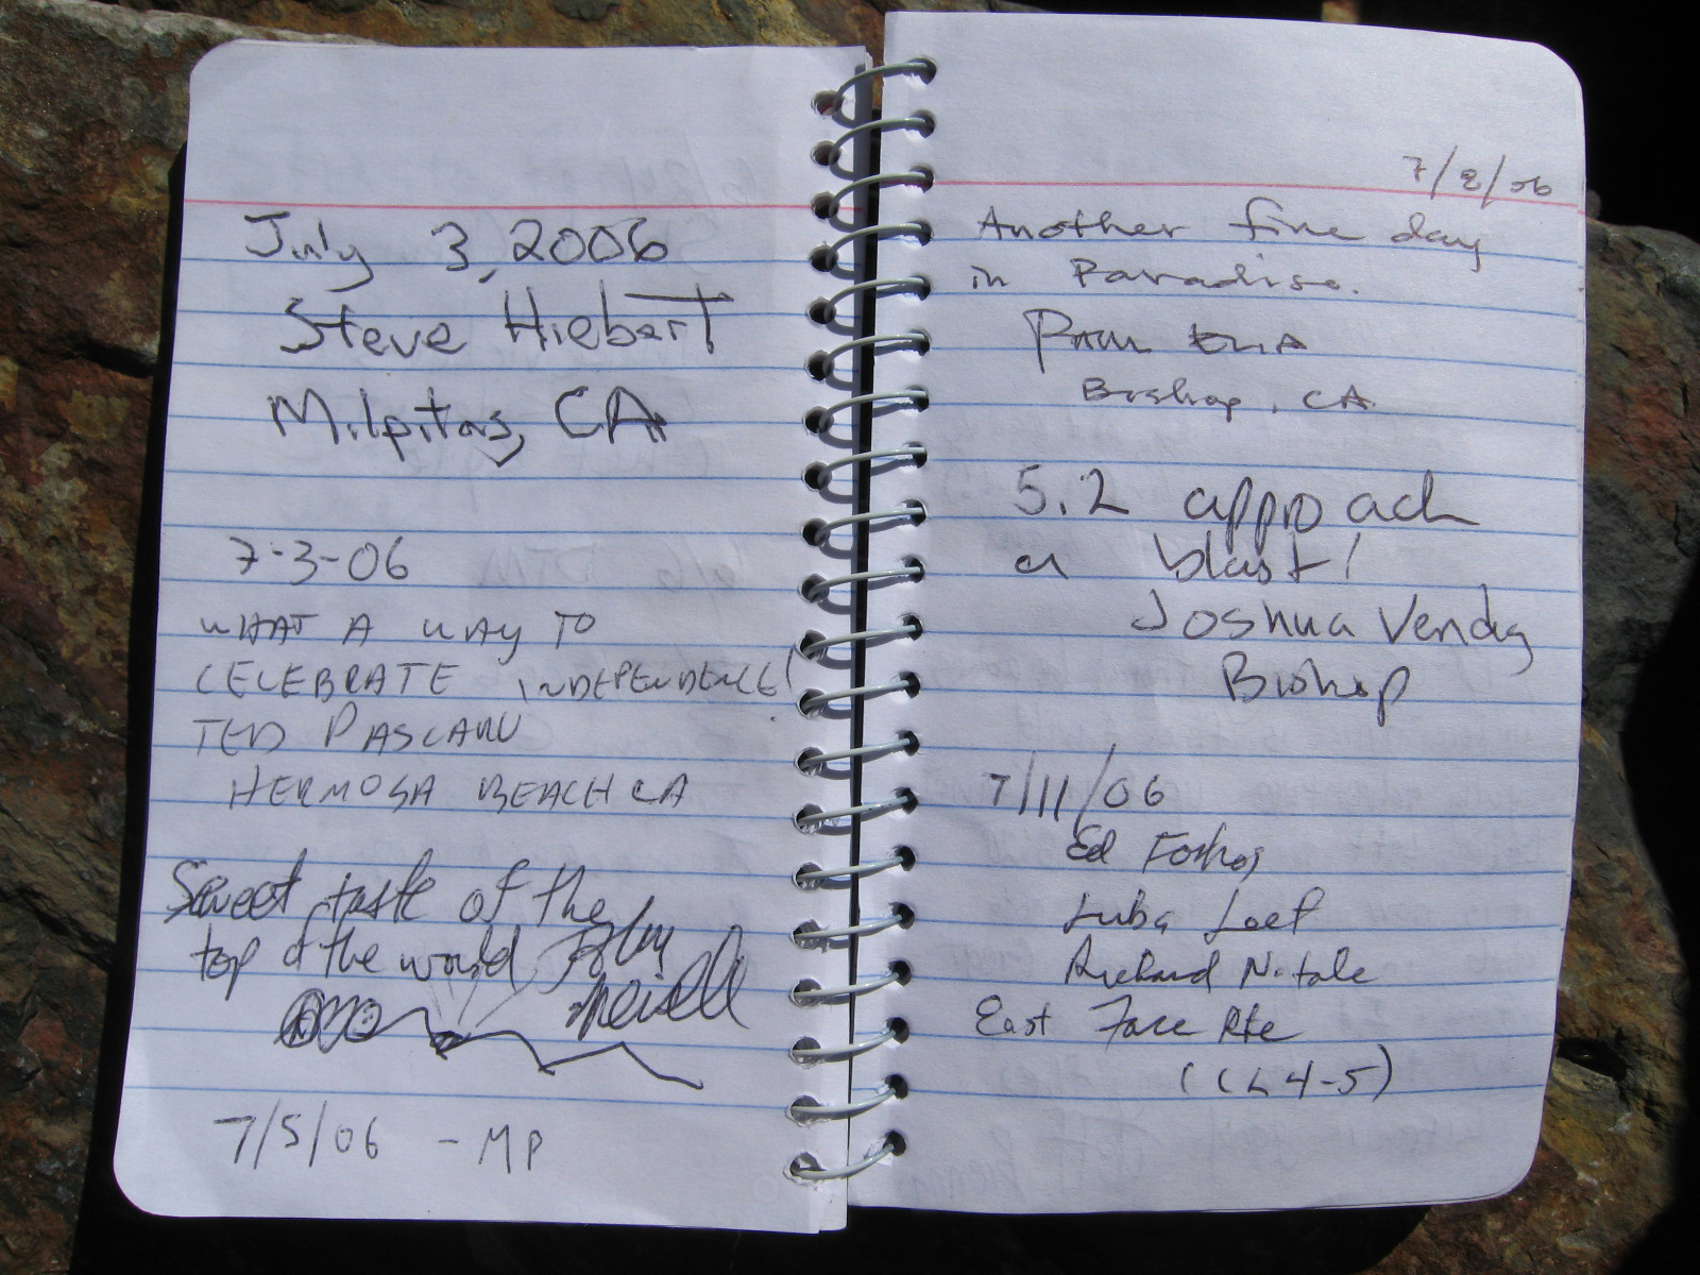 July 3, 2006
Steve Hiebert
Milpitas, CA
7-3-06
WHAT A WAY TO
CELEBRATE INDEPENDENCE!
TED PASCARU
HERMOSA BEACH CA
Sweet taste of the
top of the world
7/5/06 - MP
7/8/06
Another fine day
in Paradise.
Bishop, CA
5.2 approach
a blast!
Joshua Vendig
Bishop
7/11/06
Ed
Luba Loef
Richard Natale
East Face Rte
(CL 4-5)